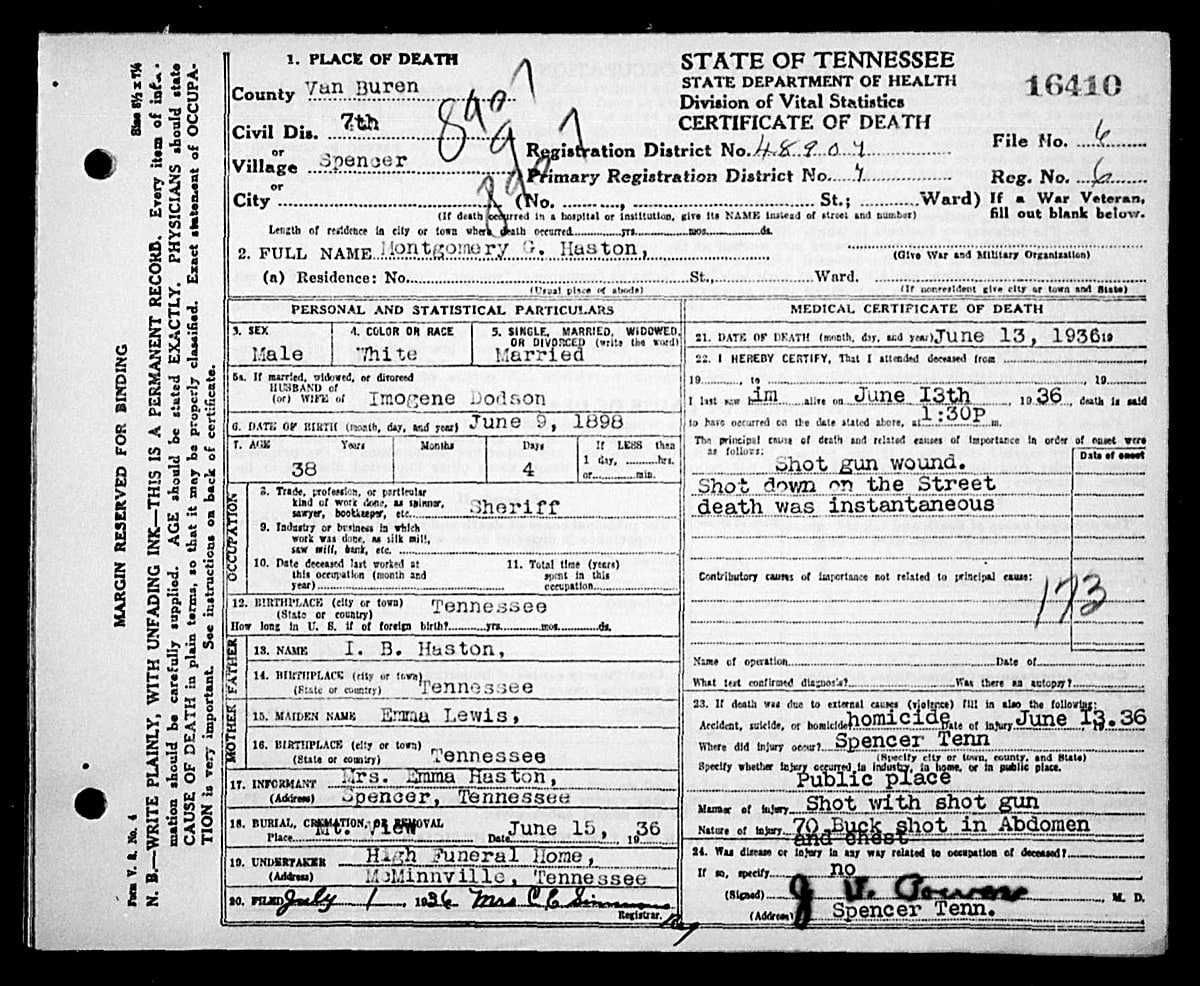 1. PLACE OF DEATH
County Van Buren
Civil Dis. 7th
or
Village Spencer
or
City
STATE OF TENNESSEE
STATE DEPARTMENT OF HEALTH
Division of Vital Statistics
CERTIFICATE OF DEATH
16410
Registration District No. 48907
File No. 6
Primary Registration District No. 7
Reg. No. 6
(No. , St.; Ward)
If a War Veteran,
fill out blank below.
(If death occurred in a hospital or institution, give its NAME instead of street and number)
Length of residence in city or town where death occurred yrs. mos. ds.
2. FULL NAME Montgomery G. Haston,
(Give War and Military Organization)
(a) Residence: No. St., Ward.
(Usual place of abode)
(If nonresident give city or town and State)
PERSONAL AND STATISTICAL PARTICULARS
3. SEX
Male
4. COLOR OR RACE
White
5. SINGLE, MARRIED, WIDOWED,
OR DIVORCED (write the word)
Married
5a. If married, widowed, or divorced
HUSBAND of
(or) WIFE of Imogene Dodson
6. DATE OF BIRTH (month, day, and year) June 9, 1898
7. AGE Years Months Days If LESS than
1 day, hrs.
or min.
38 4
OCCUPATION
8. Trade, profession, or particular
kind of work done, as spinner,
sawyer, bookkeeper, etc. Sheriff
9. Industry or business in which
work was done, as silk mill,
saw mill, bank, etc.
10. Date deceased last worked at
this occupation (month and
year)
11. Total time (years)
spent in this
occupation
12. BIRTHPLACE (city or town) Tennessee
(State or country)
How long in U. S. if of foreign birth? yrs. mos. ds.
FATHER
13. NAME I. B. Haston,
14. BIRTHPLACE (city or town)
(State or country) Tennessee
MOTHER
15. MAIDEN NAME Emma Lewis,
16. BIRTHPLACE (city or town)
(State or country) Tennessee
17. INFORMANT Mrs. Emma Haston,
(Address) Spencer, Tennessee
18. BURIAL, CREMATION, OR REMOVAL
Place Mt. View Date June 15, 19 36
19. UNDERTAKER High Funeral Home,
(Address) McMinnville, Tennessee
20. FILED July 1 1936 Mrs C C Simmons
Registrar.
MEDICAL CERTIFICATE OF DEATH
21. DATE OF DEATH (month, day, and year) June 13, 1936 19
22. I HEREBY CERTIFY, That I attended deceased from
19 , to , 19
I last saw h im alive on June I3th , 19 36, death is said
to have occurred on the date stated above, at 1:30P m.
The principal cause of death and related causes of importance in order of onset were
as follows:
Date of onset
Shot gun wound.
Shot down on the Street
death was instantaneous
Contributory causes of importance not related to principal cause:
173
Name of operation Date of
What test confirmed diagnosis? Was there an autopsy?
23. If death was due to external causes (violence) fill in also the following:
Accident, suicide, or homicide homicide Date of injury June I3, 19 36
Where did injury occur? Spencer Tenn
(Specify city or town, county, and State)
Specify whether injury occurred in industry, in home, or in public place.
Public place
Manner of injury Shot with shot gun
Nature of injury 70 Buck shot in Abdomen
and chest
24. Was disease or injury in any way related to occupation of deceased?
If so, specify no
(Signed) M. D.
(Address) Spencer Tenn.
MARGIN RESERVED FOR BINDING
Form V. S. No. 4
Size 6½ x 7¼
N. B.—WRITE PLAINLY, WITH UNFADING INK—THIS IS A PERMANENT RECORD. Every item of infor-
mation should be carefully supplied. AGE should be stated EXACTLY. PHYSICIANS should state
CAUSE OF DEATH in plain terms, so that it may be properly classified. Exact statement of OCCUPA-
TION is very important. See instructions on back of certificate.